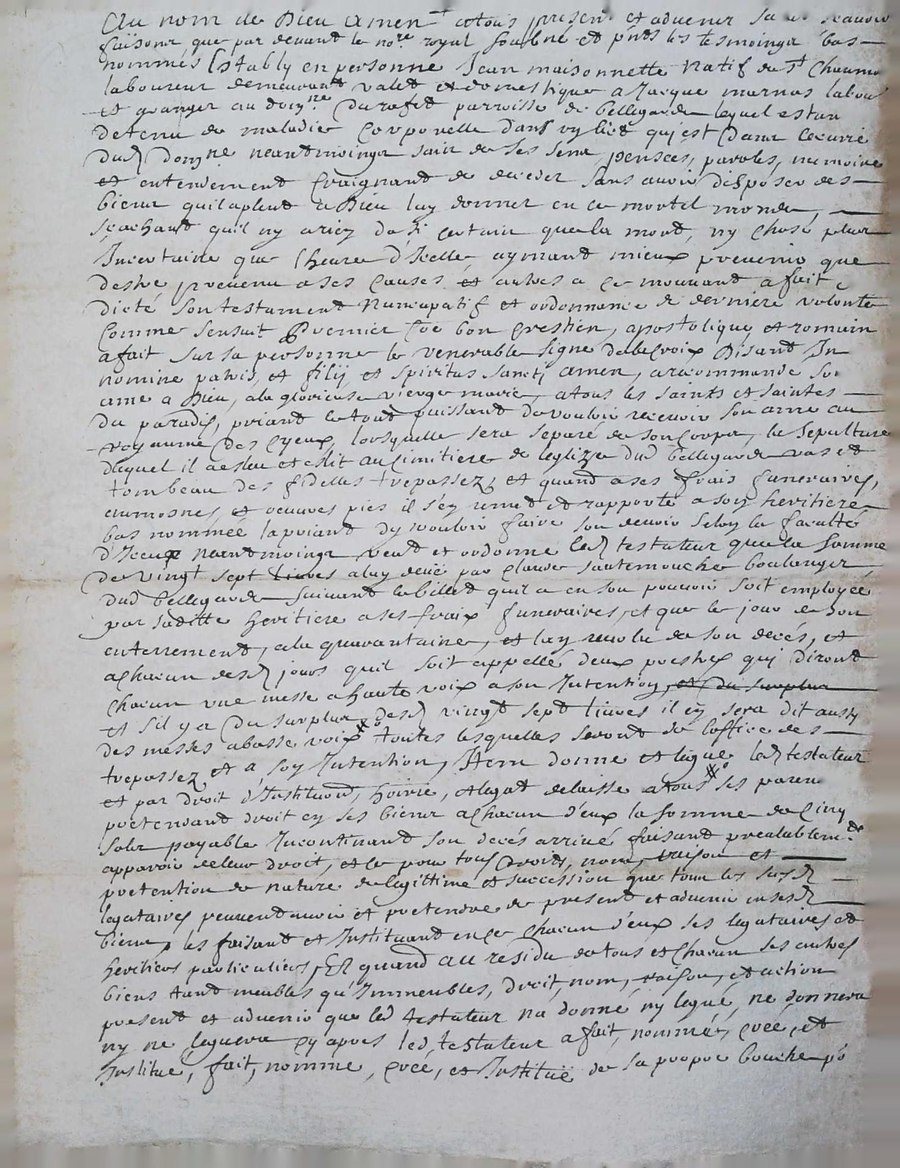 Au nom de Dieu Amen atous present et advenir sa
faisons que par devant le no.re royal soubne et pnts les tesmoings bas
nommés Estably en personne Jean maisonnette natif de St Chaumo
laboureur demeurant valet et domestique a Jacque marnas labou
et granger au dom.ne Durafet parroisse de bellegarde lequel estan
detenu de maladie corporelle dans un lict qui est dans
dud domne neantmoings sain de ses sens, pensées, paroles, memoire
et entendement craignant de deceder sans avoir disposer des
biens quil a pleut a Dieu luy donner en ce mortel monde,
scachant quil ny a rien de si certain que la mort, ny chose plus
Incertaine que l'heure d'Icelle aymant mieux prevenir que
destre prevenu a ses causes et autres a ce mouvant a fait
dicté son testament nuncupatif et ordonnance de derniere volonte
comme sensuit Premier coe bon crestien, apostolique et romain
a fait sur sa personne le venerable signe de la croix Disant In
nomine patris, et filij et spiritus sancti amen, a recommande son
ame a Dieu, a la glorieuse vierge marie, a tous les saints et saintes
du paradis, priant le tout puissant de vouloir recevoir son ame au
royaume des cyeux, lors quelle sera separé de son corps, la sepulture
duquel il a esleu et eslit au cimitiere de leglize dud bellegarde vas et
tombeau des fidelles trepassez, et quand a ses frais funeraires,
aumosnes, et oeuvres pies il s'en remet et rapporte a son heritiere
bas nommée la priant dy vouloir faire son devoir selon la faculté
d'Iceux neantmoings veut et ordonne led testateur que la somme
de vingt sept livres a luy deüe par claude sautemouche boulanger
dud bellegarde suivant le billet qu'il a en son pouvoir soit employée
par saditte heritiere a ses fraix funeraires, et que le jour de son
enterrement, a la quarantaine, et lan revolu de son decés, et
a chacun desd jours quil soit appellé deux prestres qui diront
chacun une messe a haute voix a son Intention, et du surplus
et sil y a du surplus desd vingt sept livres il en sera dit aussy
des messes a basse voix toutes lesquelles seront de l'office des
trepassez et a son Intention, Item donne et legue led testateur
et par droit d'Institution, hoirie, et legat delaisse a tous ses parens
pretendant droit en ses biens a chacun d'eux la somme de cinq
sols payable Incontinant son decés arrivé faisant prealablem.t
apparoir de leur droit, et ce pour tous droits, nom, raison et
pretention de nature de legittime et succession que tous les susd
legataires peuvent avoir et pretendre de present et advenir en sesd
biens, les faisant et Instituant en ce chacun d'eux ses legataires et
heritiers particuliers, Et quand au residu de tous et chacun ses autres
biens tant meubles qu'Immeubles, droit, nom, raison, et action
present et advenir que led testateur na donné ny legué, ne donnera
ny ne leguera cy apres led testateur a fait, nommé, créé, et
Institué, fait, nomme, créé, et Instituë de sa propre bouche po